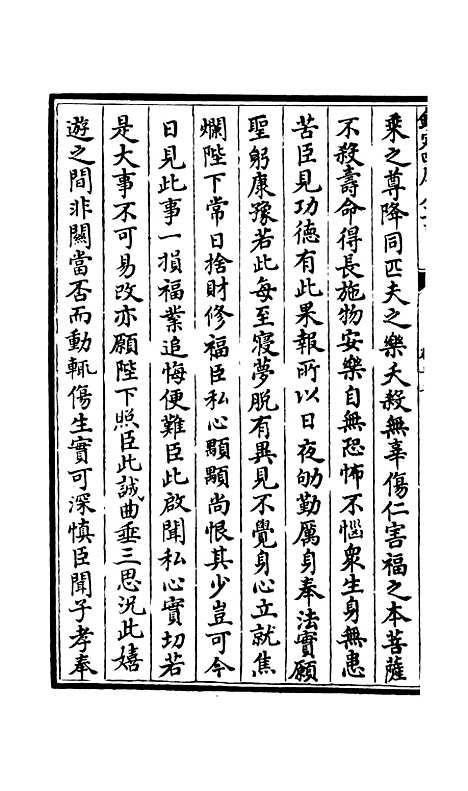 乗之尊降同匹夫之樂夭殺無辜傷仁害福之本菩薩
不殺壽命得長施物安樂自無恐怖不惱衆生身無患
苦臣見功徳有此果報所以日夜劬勤厲身奉法實願
聖躬康豫若此每至寢夢脱有異見不覺身心立就焦
爛陛下常日捨財修福臣私心顒顒尚恨其少豈可今
日見此事一損福業追悔便難臣此啟聞私心實切若
是大事不可易改亦願陛下照臣此誠曲垂三思況此嬉
遊之間非關當否而動輒傷生實可深慎臣聞子孝奉